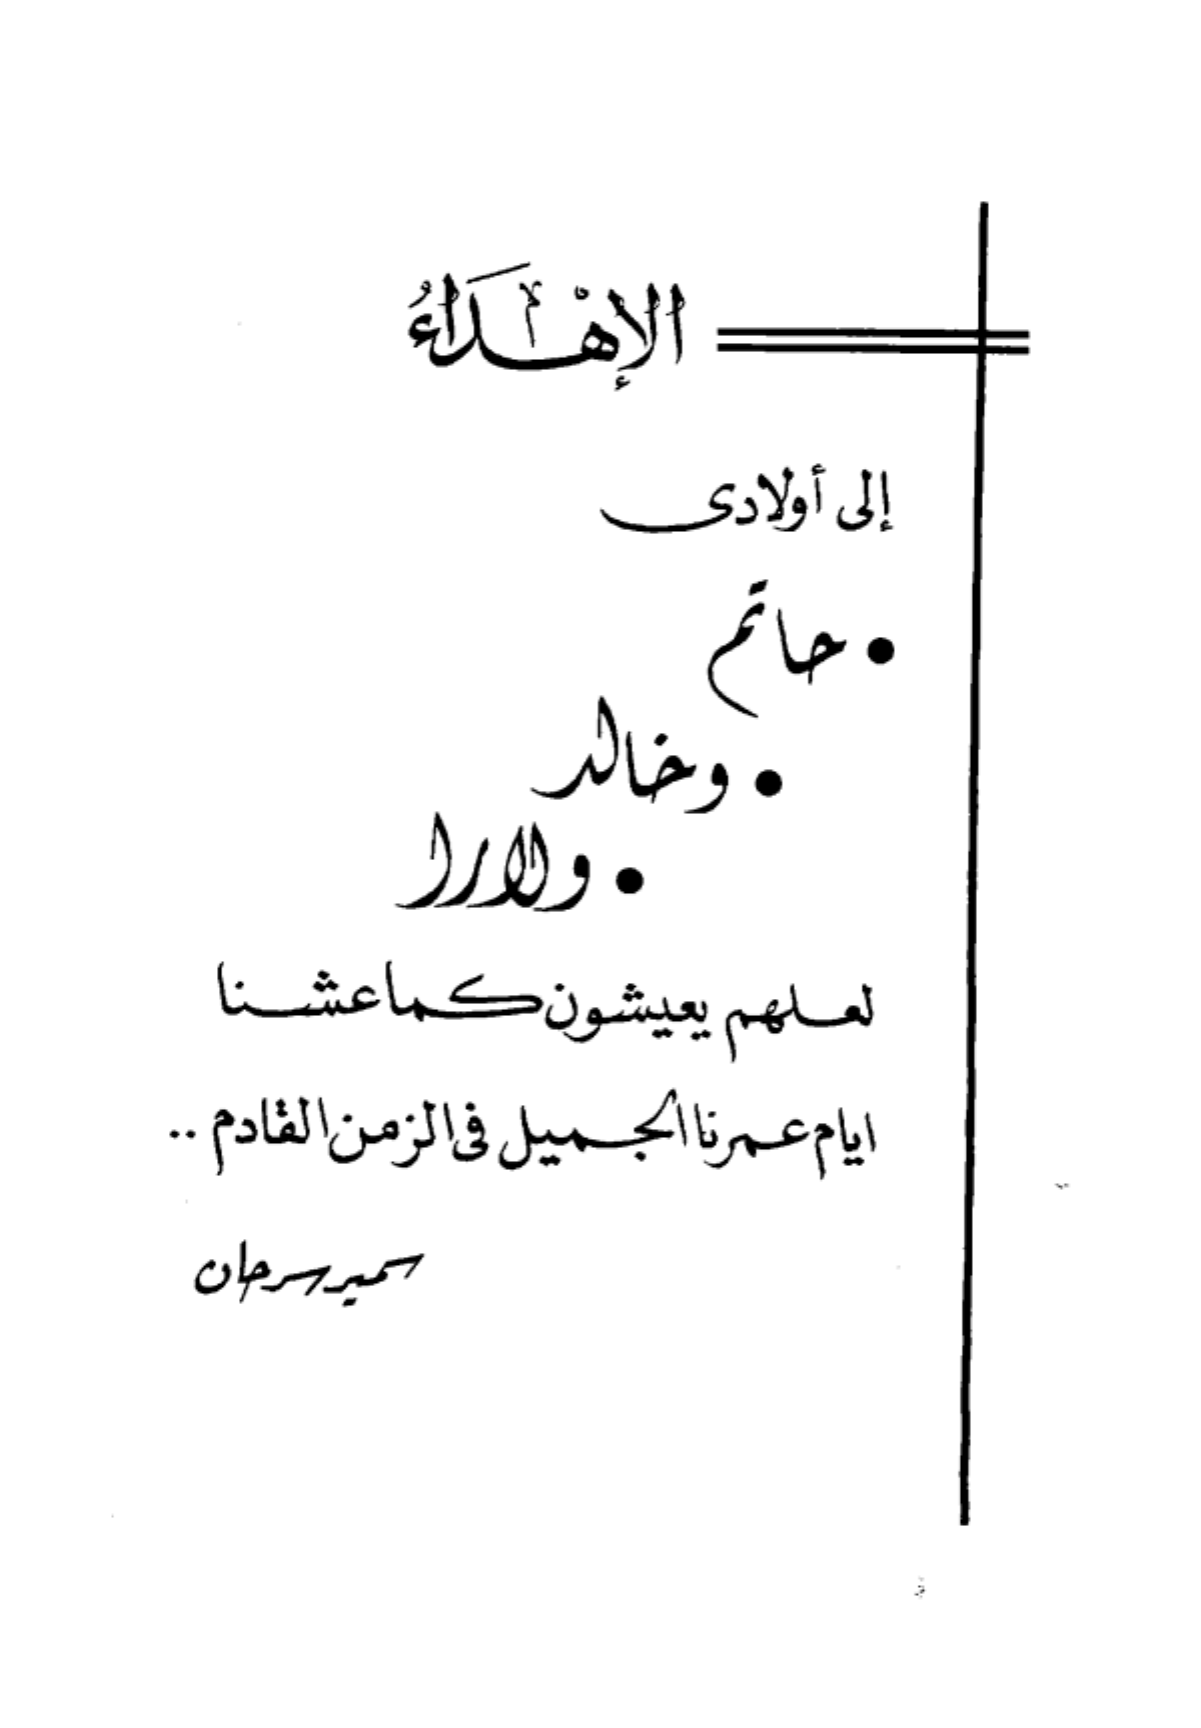 الإهْدَاءُ
إلى أولادى
• حاتم
• وخالد
• ولارا
لعلهم يعيشون كما عشنا
ايام عمرنا الجميل فى الزمن القادم ..
سمير سرحان